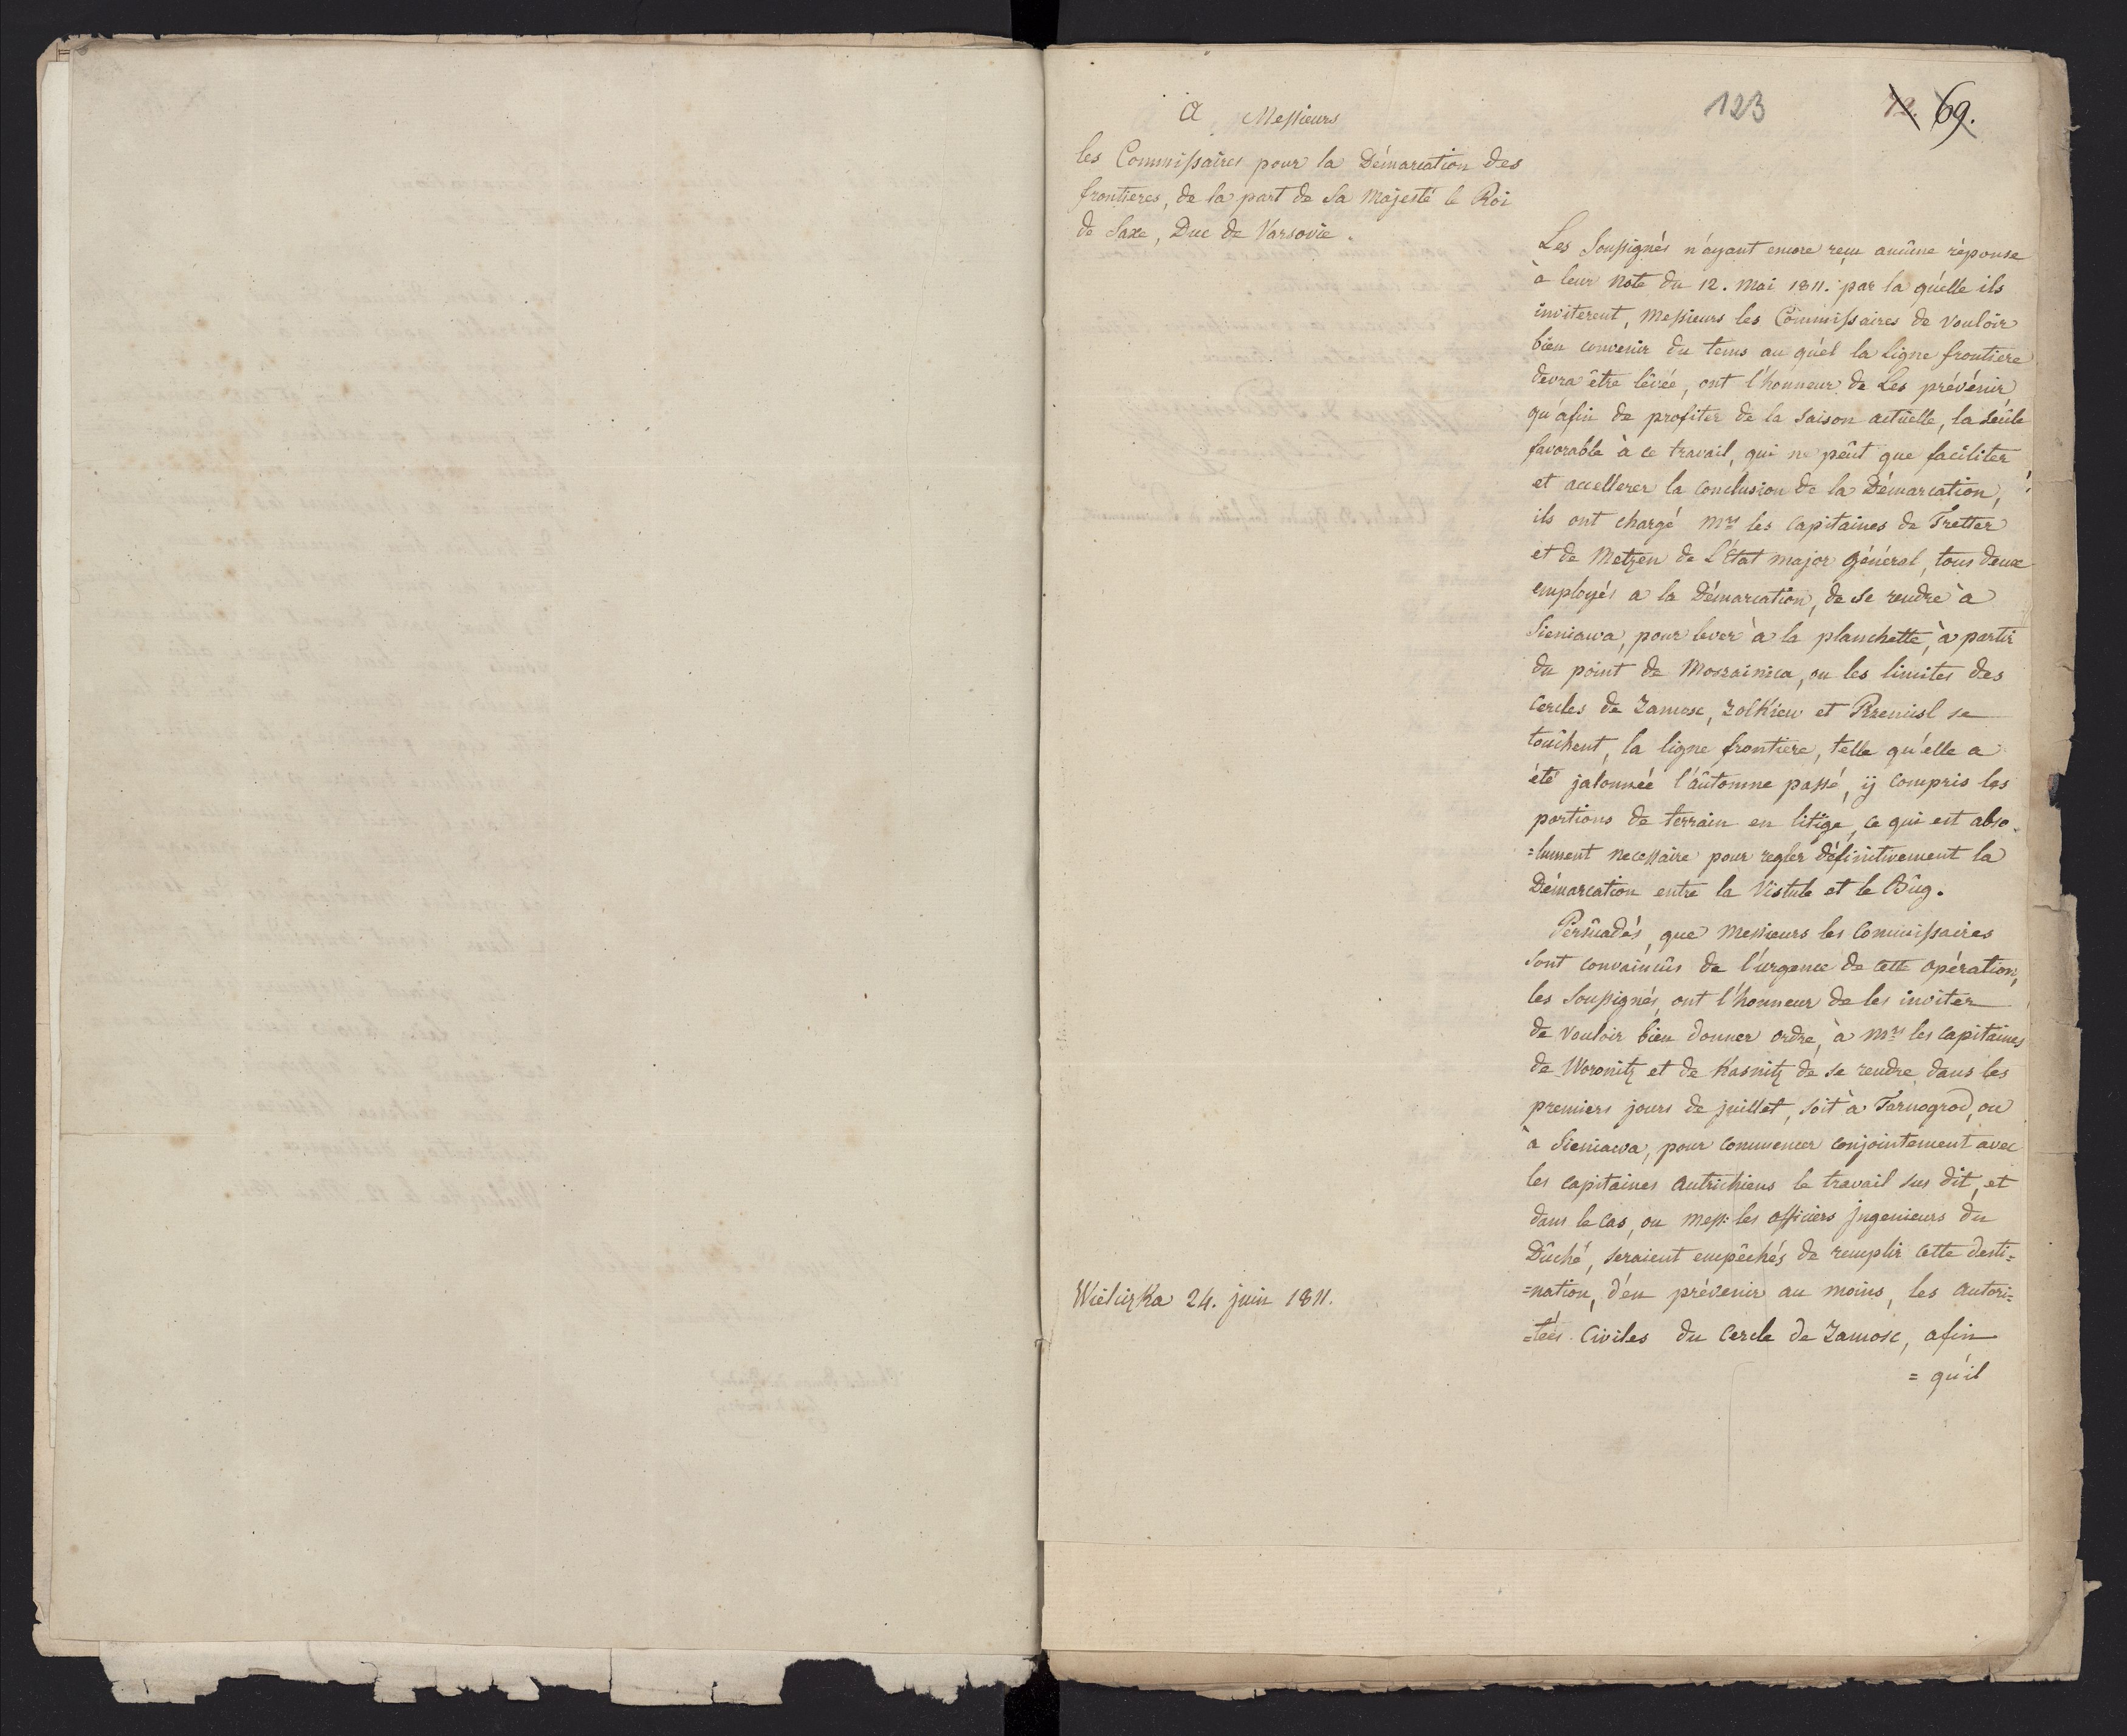 123
72. 69.
A Messieurs
les Commissaires pour la Démarcation des
frontieres, de la part de Sa Majesté le Roi
de Saxe, Duc de Varsovie.
Les Soussignés n'ayant encore reçu aucûne réponse
à leur Note du 12. Mai 1811. par la quélle ils
inviterent, Messieurs les Commissaires de vouloir
bien convenir du tems au quél la Ligne frontiere
devra être lêvée, ont l'honneur de Les prévénir,
qu'afin de profiter de la Saison actûelle, la seûle
favorable à ce travail, qui ne pêut que faciliter
et accellerer la conclusion de la Démarcation,
ils ont chargé Mrs les Capitaines de Tretter
et de Metzen de L'État major Général, tous deux
employés a la Démarcation, de se rendre à
Sieniawa, pour lever à la planchette, à partir
du point de Moszainica, ou les limites des
Cercles de Zamosc, Zolkiew et Przemisl se
touchent, la ligne frontiere, telle qu'elle a
été jalonnée l'aûtomne passé, ÿ compris les
portions de terrain en litige, ce qui est abso-
=lument necessaire pour regler définitivement la
Démarcation entre la Vistule et le Bûg.
Persûadés, que Messieurs les Commissaires
sont convaincûs de l'urgence de cette opération,
les Soussignés, ont l'honneur de les inviter
de vouloir bien donner ordre, à Mrs les Capitaines
de Woronitz et de Kasnitz de se rendre dans les
premiers jours de juillet, soit à Tarnogrod, ou
à Sieniawa, pour commencer conjointement avec
les Capitaines Autrichiens le travail sus dit, et
dans le cas, ou Mess: les officiers Jngenieurs du
Dûché, seraient empêchés de remplir cette desti=
=nation, d'en prévenir au moins, les Autori=
=tées Civiles du Cercle de Zamosc, afin
= qu'il
Wieliczka 24. juin 1811.